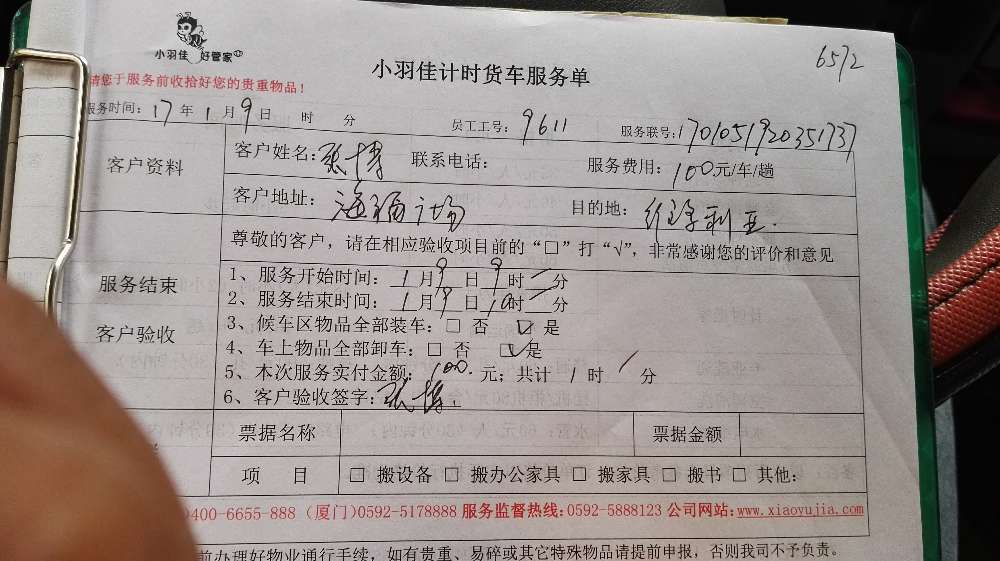 6572
小羽佳 好管家
小羽佳计时货车服务单
请您于服务前收拾好您的贵重物品！
服务时间：17年1月9日 时 分 员工工号：9611 服务联号：1701051920351737
客户资料
客户姓名：张博 联系电话： 服务费用：100元/车/趟
客户地址：海福广场 目的地：维多利亚.
尊敬的客户，请在相应验收项目前的“□”打“√”，非常感谢您的评价和意见
服务结束
客户验收
1、服务开始时间：1月9日9时 分
2、服务结束时间：1月9日10时 分
3、候车区物品全部装车：□ 否 ☑ 是
4、车上物品全部卸车：□ 否 ☑ 是
5、本次服务实付金额：100.元；共计 1 时 / 分
6、客户验收签字：张博.
票据名称 票据金额
项 目 □ 搬设备 □ 搬办公家具 □ 搬家具 □ 搬书 □ 其他：
400-6655-888（厦门）0592-5178888 服务监督热线：0592-5888123 公司网站：www.xiaoyujia.com
前办理好物业通行手续，如有贵重、易碎或其它特殊物品请提前申报，否则我司不予负责。